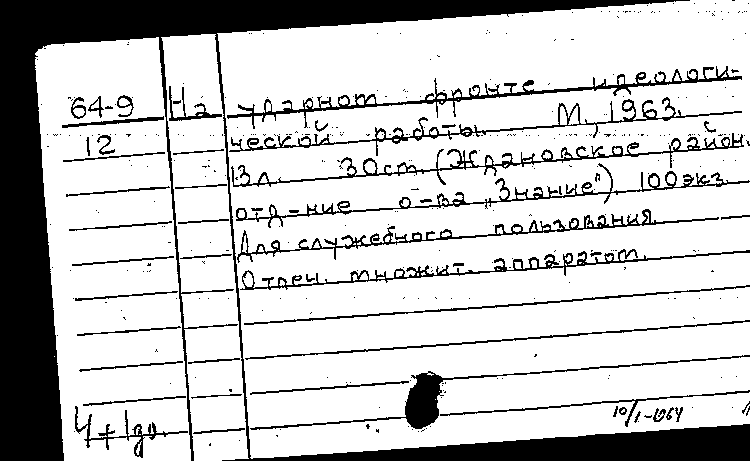 64-9 На ударном фронте идеологи-
12 ческой работы. М., 1963.
13 л. 30 см. (Ждановское район.
отд-ние о-ва „Знание"). 100 экз.
Для служебного пользования.
Отпеч. множит. аппаратом.
10/I-1964